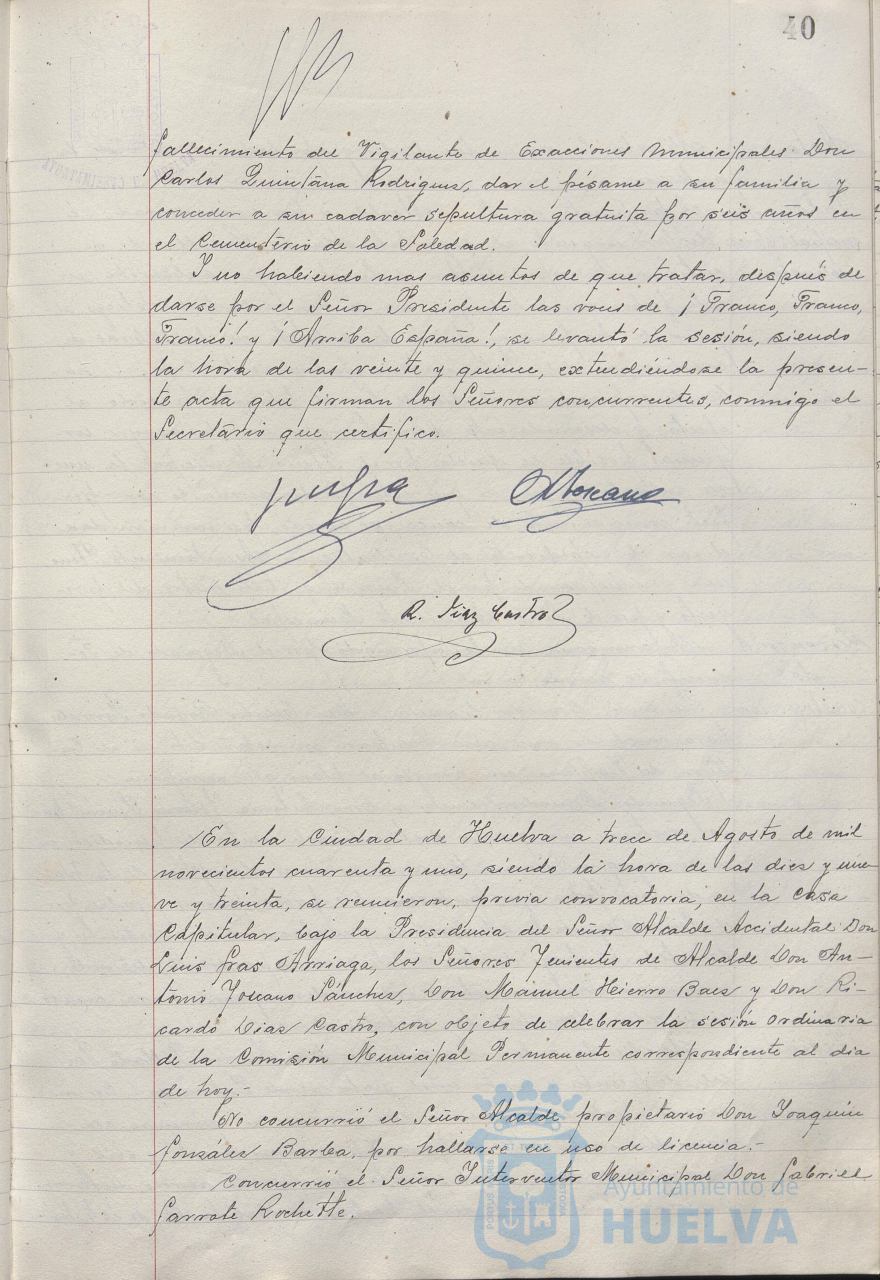 40
fallecimiento del Vigilante de Exacciones Municipales Don
Carlos Quintana Rodriguez, dar el pésame a su familia y
conceder a su cadaver sepultura gratuita por seis años en
el Cementerio de la Soledad.
Y no habiendo mas asuntos de que tratar, después de
darse por el Señor Presidente las voces de ¡Franco, Franco,
Franco! y ¡Arriba España!, se levantó la sesión, siendo
la hora de las veinte y quince, extendiéndose la presen-
te acta que firman los Señores concurrentes, conmigo el
Secretario que certifico.
A Toscano
R. Diaz Castro
En la Ciudad de Huelva a trece de Agosto de mil
novecientos cuarenta y uno, siendo la hora de las diez y nue-
ve y treinta, se reunieron, previa convocatoria, en la Casa
Capitular, bajo la Presidencia del Señor Alcalde Accidental Don
Luis Gras Arriaga, los Señores Tenientes de Alcalde Don An-
tonio Toscano Sánchez, Don Manuel Hierro Baez y Don Ri-
cardo Diaz Castro, con objeto de celebrar la sesión ordinaria
de la Comisión Municipal Permanente correspondiente al dia
de hoy.-
No concurrió el Señor Alcalde propietario Don Joaquín
González Barba, por hallarse en uso de licencia.-
Concurrió el Señor Interventor Municipal Don Gabriel
Garrote Rochette.
Ayuntamiento de
HUELVA